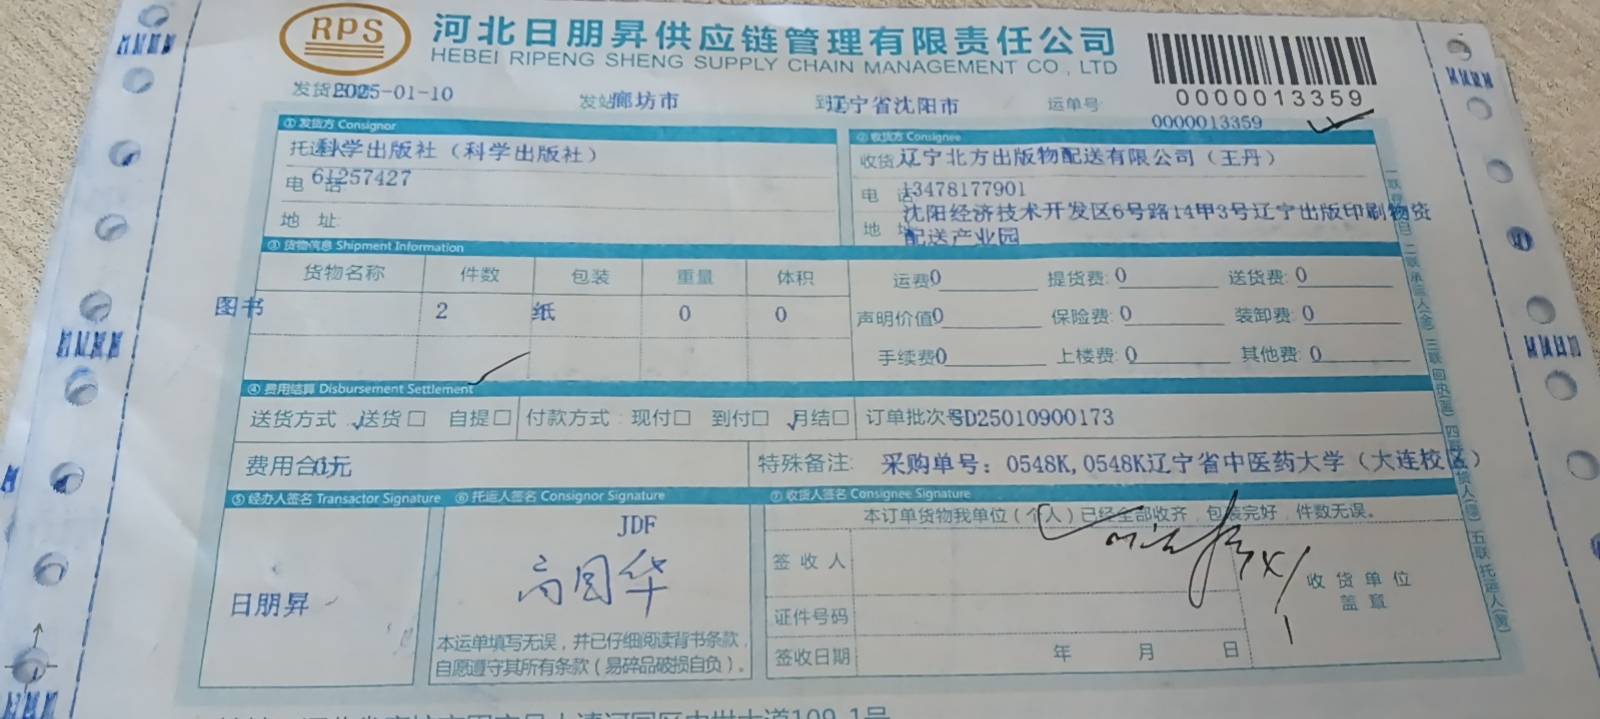 RPS
河北日朋昇供应链管理有限责任公司
HEBEI RIPENG SHENG SUPPLY CHAIN MANAGEMENT CO., LTD
0000013359
发货 2025-01-10 发站 廊坊市 到 辽宁省沈阳市 运单号:
0000013359
① 发货方 Consignor
托运 科学出版社（科学出版社）
电 话: 61257427
地 址:
② 收货方 Consignee
收货 辽宁北方出版物配送有限公司（王丹）
电 话 13478177901
地 址 沈阳经济技术开发区6号路14甲3号辽宁出版印刷物资
配送产业园
③ 货物信息 Shipment Information
货物名称 件数 包装 重量 体积
图书 2 纸 0 0
运费 0 提货费: 0 送货费: 0
声明价值 0 保险费: 0 装卸费: 0
手续费 0 上楼费: 0 其他费: 0
④ 费用结算 Disbursement Settlement
送货方式 送货□ 自提□ 付款方式: 现付□ 到付□ 月结□ 订单批次号 D25010900173
费用合计 0元 特殊备注: 采购单号: 0548K,0548K辽宁省中医药大学（大连校区）
⑤ 经办人签名 Transactor Signature
日朋昇
⑥ 托运人签名 Consignor Signature
JDF
高国华
本运单填写无误，并已仔细阅读背书条款，
自愿遵守其所有条款（易碎品破损自负）。
⑦ 收货人签名 Consignee Signature
本订单货物我单位（个人）已经全部收齐，包装完好，件数无误。
签收人
证件号码
签收日期 年 月 日
收货单位
盖章